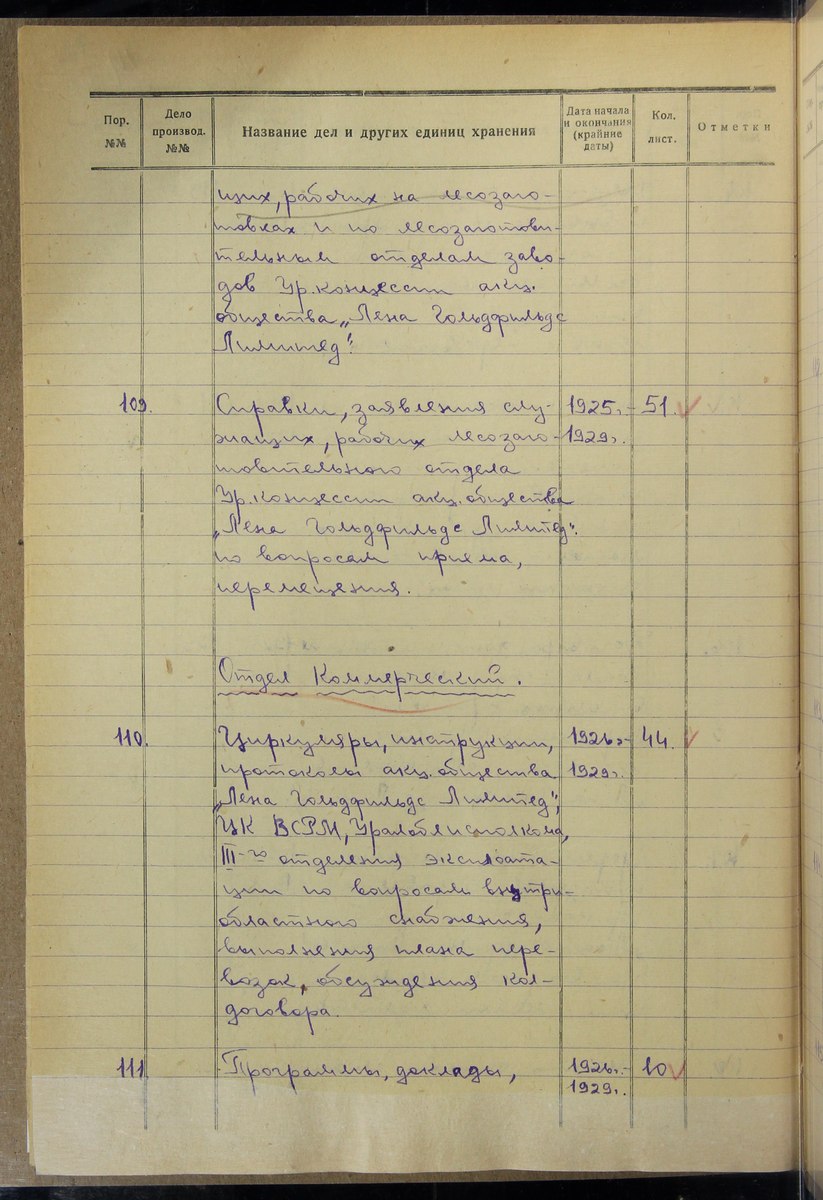 Пор. №№
Дело производ. №№
Название дел и других единиц хранения
Дата начала и окончания (крайние даты)
Кол. лист.
Отметки
щих, рабочих на лесозаго-
товках и по лесозаготови-
тельным отделам заво-
дов Ур. концессии акц.
общества „Лена Гольдфильдс
Лимитед".
109. Справки, заявления слу- 1925г.- 51.
жащих, рабочих лесозаго- 1929г.
товительного отдела
Ур. концессии акц. общества
„Лена Гольдфильдс Лимитед".
по вопросам приема,
перемещения.
Отдел Коммерческий.
110. Циркуляры, инструкции, 1926г.- 44.
протоколы акц. общества 1929г.
„Лена Гольдфильдс Лимитед",
ЦК ВСРМ, Уралоблисполкома,
III-го отделения эксплоата-
ции по вопросам внутри-
областного снабжения,
выполнения плана пере-
возок, обсуждения кол-
договора.
111. Программы, доклады, 1926г.- 10
1929г.